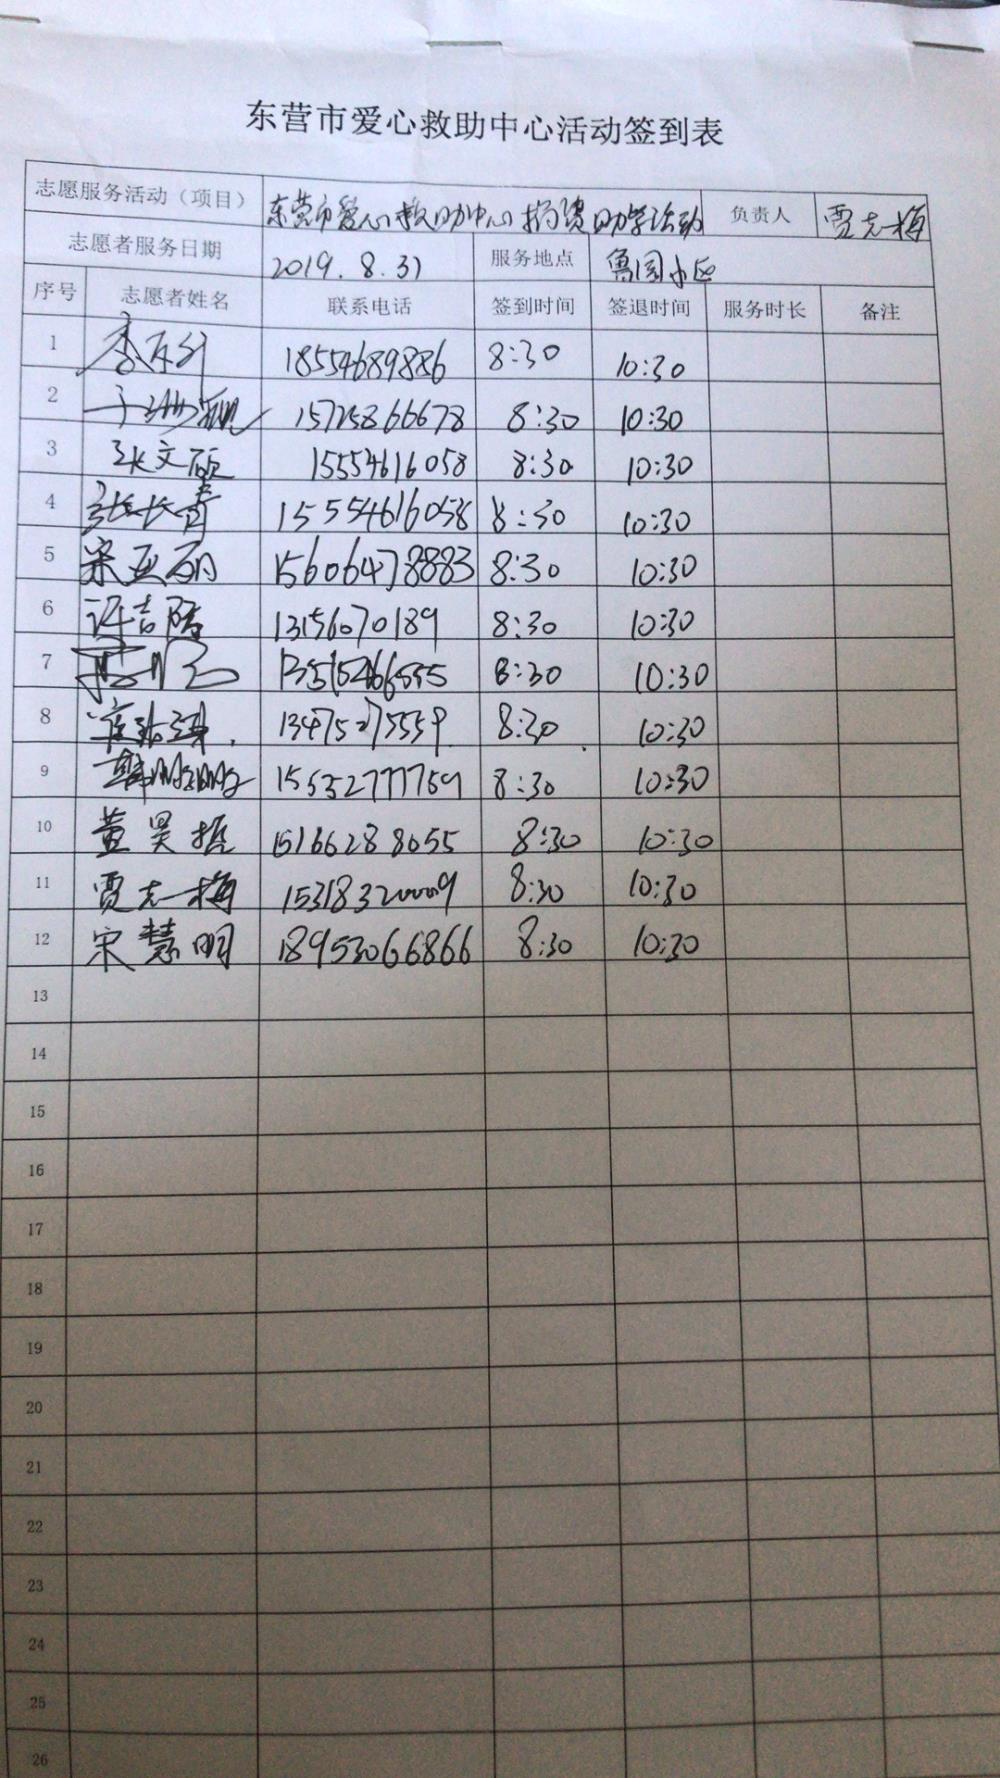 东营市爱心救助中心活动签到表
志愿服务活动（项目） 东营市爱心救助中心捐资助学活动 负责人 贾志梅
志愿者服务日期 2019.8.31 服务地点 鲁园小区
序号 志愿者姓名 联系电话 签到时间 签退时间 服务时长 备注
1 18554689886 8:30 10:30
2 15725866678 8:30 10:30
3 张文硕 15554616058 8:30 10:30
4 张长青 15554616058 8:30 10:30
5 宋亚丽 15606478883 8:30 10:30
6 许吉 13156070189 8:30 10:30
7 8:30 10:30
8 13475275559 8:30 10:30
9 韩 8:30 10:30
10 黄昊哲 15166288055 8:30 10:30
11 贾志梅 15318320009 8:30 10:30
12 宋慧明 18953066866 8:30 10:30
13
14
15
16
17
18
19
20
21
22
23
24
25
26